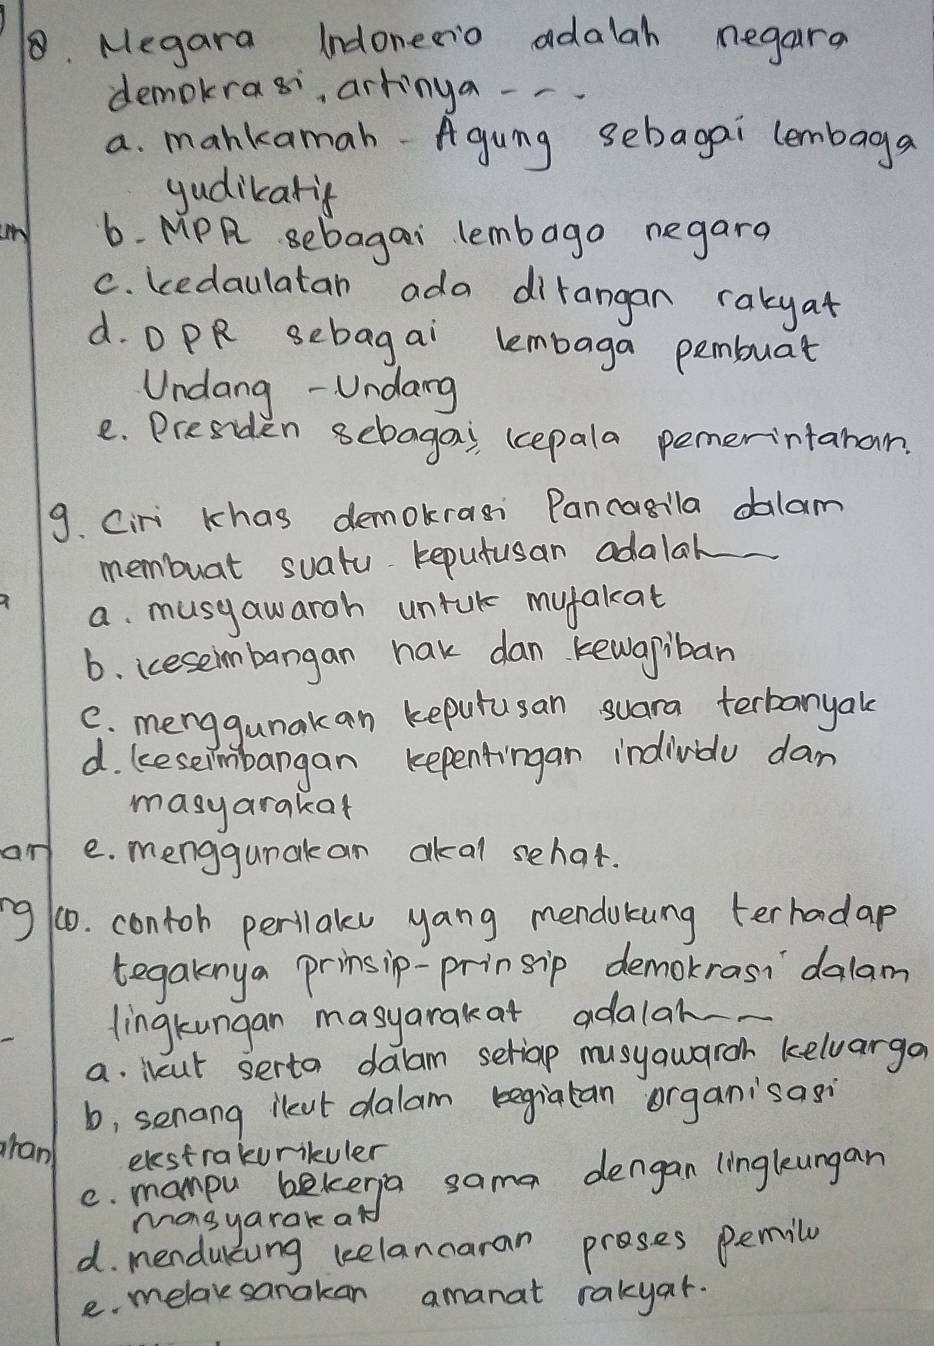 8. Negara Indonesia adalah negara
demokrasi, artinya - - -
a. mahkamah - Agung sebagai lembaga
yudikatif
b. MPR sebagai lembaga negara
c. kedaulatan ada ditangan rakyat
d. DPR sebagai lembaga pembuat
Undang - Undang
e. Presiden sebagai kepala pemerintahan.
9. Ciri khas demokrasi Pancasila dalam
membuat suatu keputusan adalah
a. musyawarah untuk mufakat
b. keseimbangan hak dan kewajiban
c. menggunakan keputusan suara terbanyak
d. keseimbangan kepentingan individu dan
masyarakat
e. menggunakan akal sehat.
10. contoh perilaku yang mendukung terhadap
tegaknya prinsip-prinsip demokrasi dalam
lingkungan masyarakat adalah
a. ikut serta dalam setiap musyawarah keluarga
b, senang ikut dalam kegiatan organisasi
ekstrakurikuler
c. mampu bekerja sama dengan lingkungan
masyarakat
d. mendukung kelancaran proses pemilu
e. melaksanakan amanat rakyat.